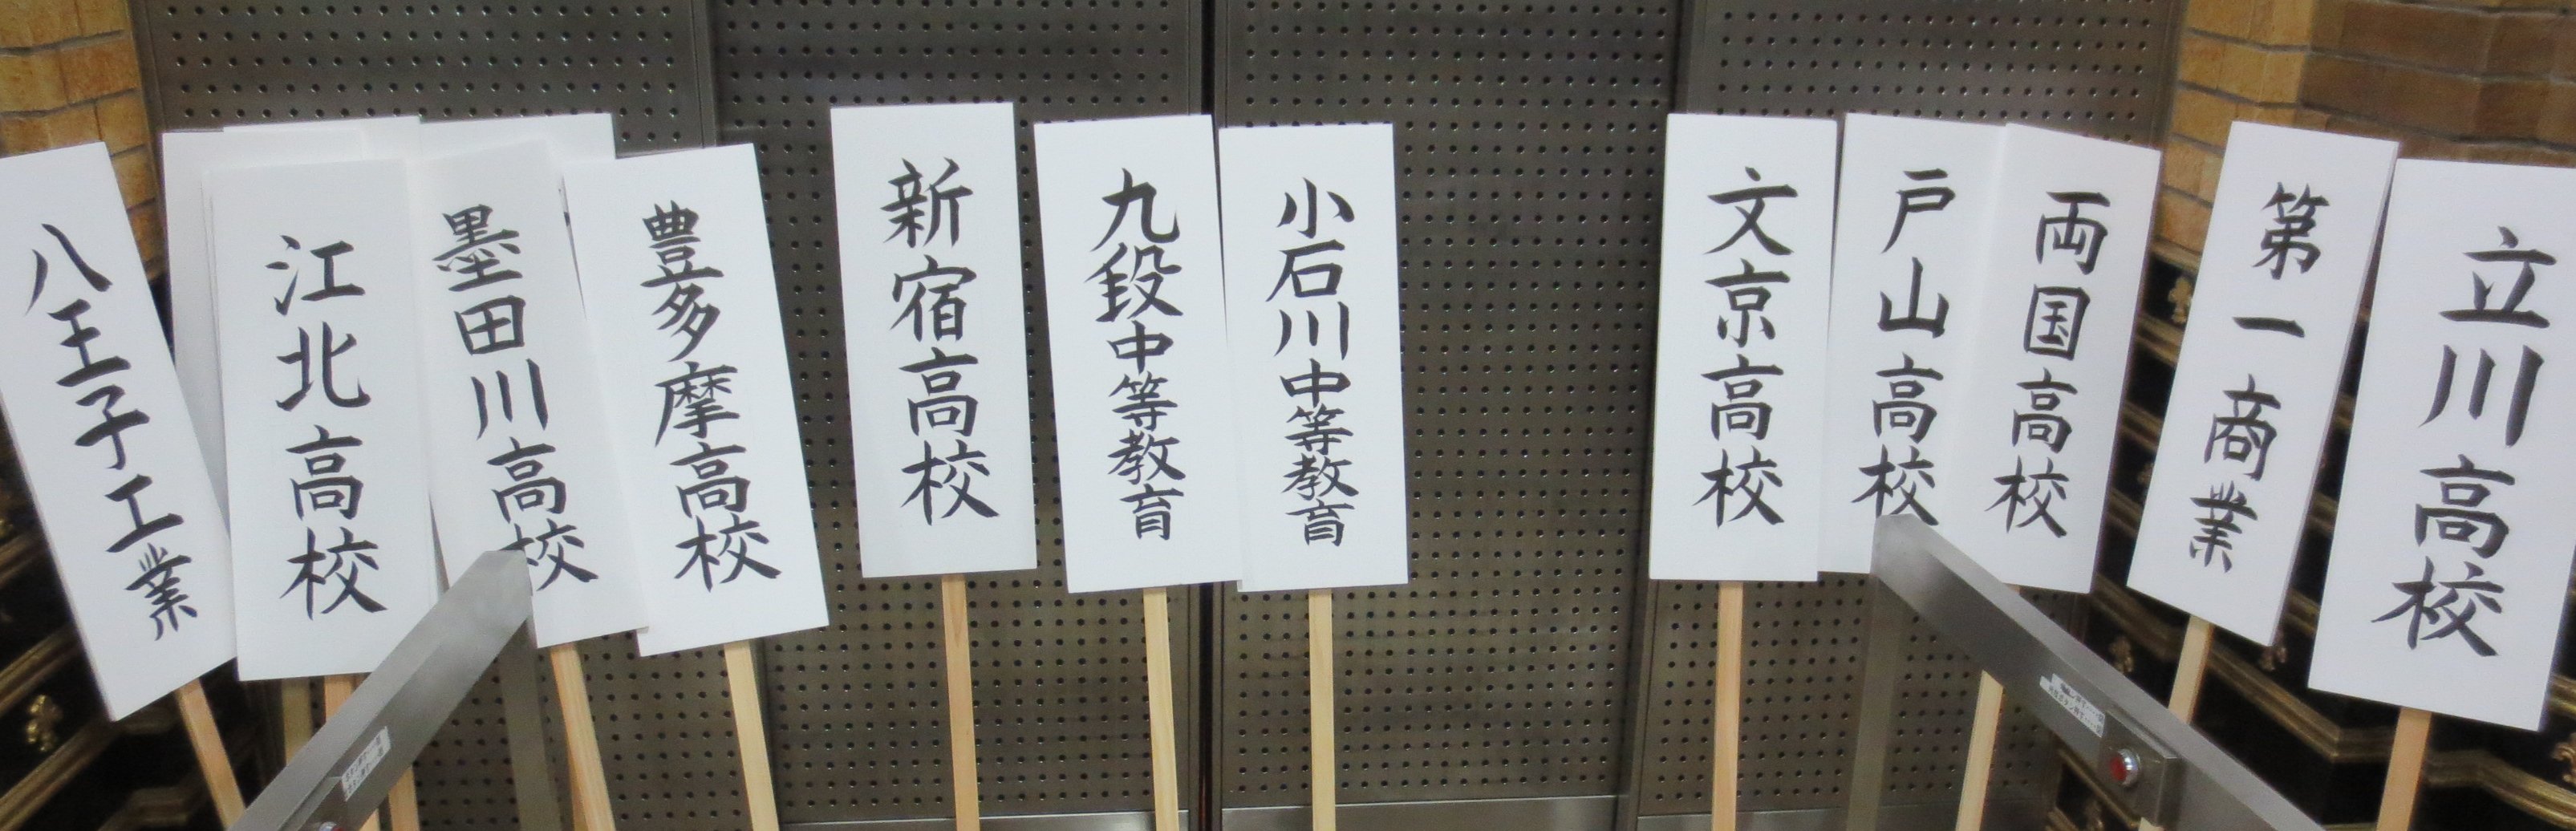 八王子工業
江北高校
墨田川高校
豊多摩高校
新宿高校
九段中等教育
小石川中等教育
文京高校
戸山高校
両国高校
第一商業
立川高校